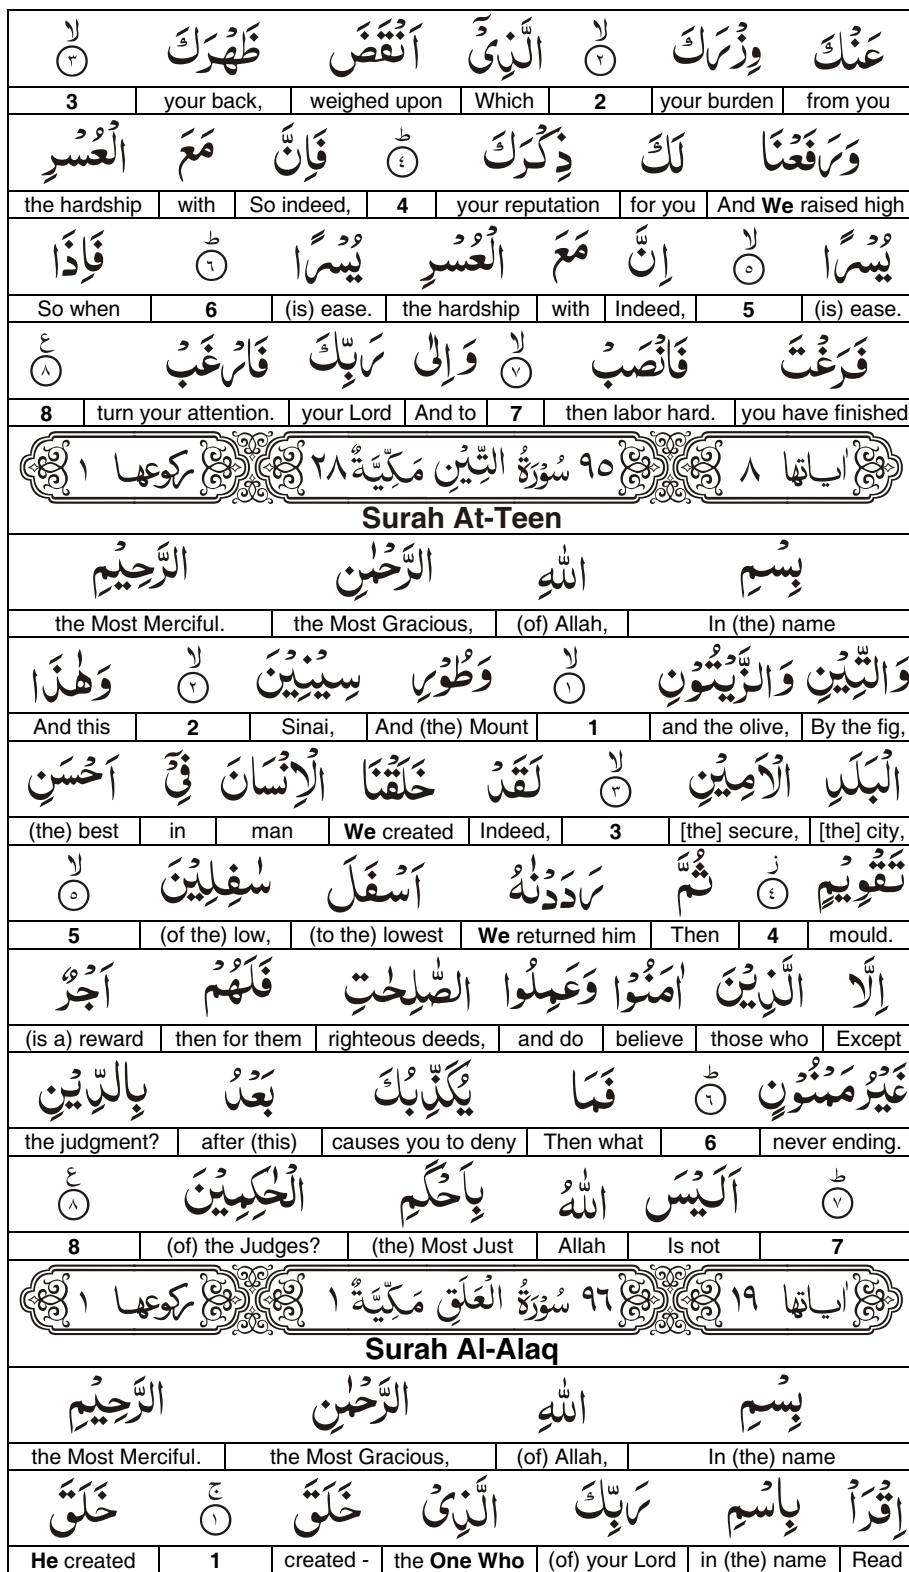 عَنْكَ وِزْرَكَ ۙ﴿۲﴾ الَّذِىْٓ اَنْقَضَ ظَهْرَكَ ۙ﴿۳﴾
from you your burden 2 Which weighed upon your back, 3
وَرَفَعْنَا لَكَ ذِكْرَكَ ؕ﴿۴﴾ فَاِنَّ مَعَ الْعُسْرِ
And We raised high for you your reputation 4 So indeed, with the hardship
يُسْرًا ۙ﴿۵﴾ اِنَّ مَعَ الْعُسْرِ يُسْرًا ؕ﴿۶﴾ فَاِذَا
(is) ease. 5 Indeed, with the hardship (is) ease. 6 So when
فَرَغْتَ فَانْصَبْ ۙ﴿۷﴾ وَاِلٰى رَبِّكَ فَارْغَبْ ﴿۸﴾ ع
you have finished then labor hard. 7 And to your Lord turn your attention. 8
اٰیاتها ۸ ۹۵ سُوْرَةُ التِّيْنِ مَكِّيَّةٌ ۲۸ رکوعها ۱
Surah At-Teen
بِسْمِ اللّٰهِ الرَّحْمٰنِ الرَّحِيْمِ
In (the) name (of) Allah, the Most Gracious, the Most Merciful.
وَالتِّيْنِ وَالزَّيْتُوْنِ ۙ﴿۱﴾ وَطُوْرِ سِيْنِيْنَ ۙ﴿۲﴾ وَهٰذَا
By the fig, and the olive, 1 And (the) Mount Sinai, 2 And this
الْبَلَدِ الْاَمِيْنِ ۙ﴿۳﴾ لَقَدْ خَلَقْنَا الْاِنْسَانَ فِىْٓ اَحْسَنِ
[the] city, [the] secure, 3 Indeed, We created man in (the) best
تَقْوِيْمٍ ز﴿۴﴾ ثُمَّ رَدَدْنٰهُ اَسْفَلَ سٰفِلِيْنَ ۙ﴿۵﴾
mould. 4 Then We returned him (to the) lowest (of the) low, 5
اِلَّا الَّذِيْنَ اٰمَنُوْا وَعَمِلُوا الصّٰلِحٰتِ فَلَهُمْ اَجْرٌ
Except those who believe and do righteous deeds, then for them (is a) reward
غَيْرُ مَمْنُوْنٍ ؕ﴿۶﴾ فَمَا يُكَذِّبُكَ بَعْدُ بِالدِّيْنِ
never ending. 6 Then what causes you to deny after (this) the judgment?
ؕ﴿۷﴾ اَلَيْسَ اللّٰهُ بِاَحْكَمِ الْحٰكِمِيْنَ ﴿۸﴾ ع
7 Is not Allah (the) Most Just (of) the Judges? 8
اٰیاتها ۱۹ ۹۶ سُوْرَةُ الْعَلَقِ مَكِّيَّةٌ ۱ رکوعها ۱
Surah Al-Alaq
بِسْمِ اللّٰهِ الرَّحْمٰنِ الرَّحِيْمِ
In (the) name (of) Allah, the Most Gracious, the Most Merciful.
اِقْرَاْ بِاسْمِ رَبِّكَ الَّذِىْ خَلَقَ ۚ﴿۱﴾ خَلَقَ
Read in (the) name (of) your Lord the One Who created - 1 He created